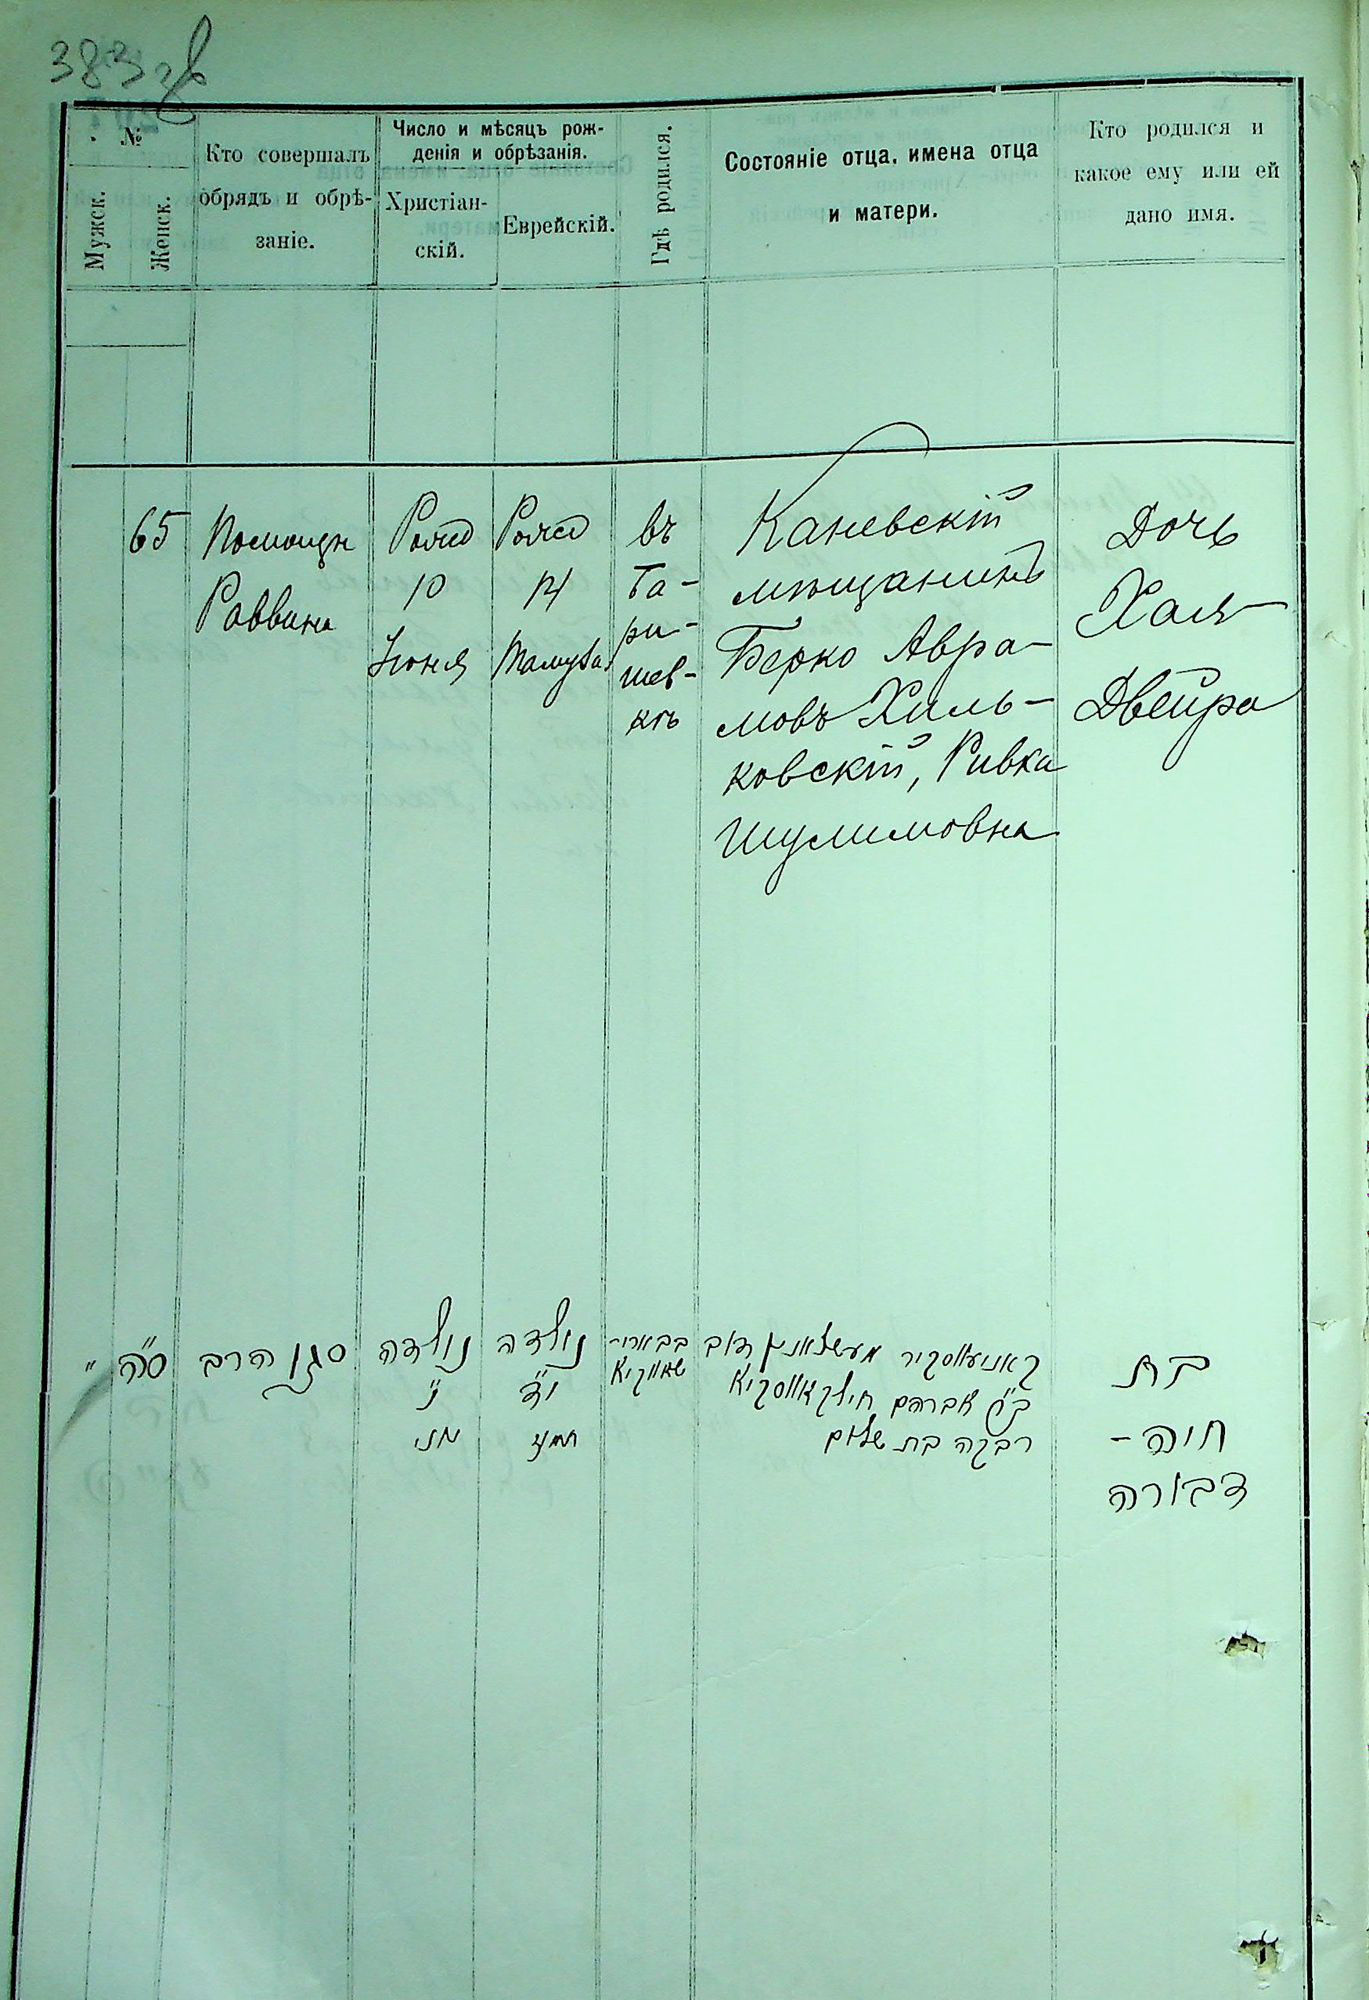 383 об
№
Мужск.
Женск.
Кто совершалъ
обрядъ и обрѣ-
заніе.
Число и мѣсяцъ рож-
денія и обрѣзанія.
Христіан-
скій.
Еврейскій.
Гдѣ родился.
Состояніе отца, имена отца
и матери.
Кто родился и
какое ему или ей
дано имя.
65
Помощн
Раввина
Рожд
10
Іюня
Рожд
14
Тамуза
въ
Та-
ра-
шев-
кѣ
Каневскій
мѣщанинъ
Берко Авра-
мовъ Хиль-
ковскій, Ривка
Шулимовна
Дочь
Хая
Двейра
"
ס"ה
סגן הרב
נולדה
י'
יוני
נולדה
י"ד
תמוז
קאניעווסקיר מעשצאנין דוב
ב"ר אברהם חילקאווסקיא
רבקה בת שלום
בת
חיה-
דבורה